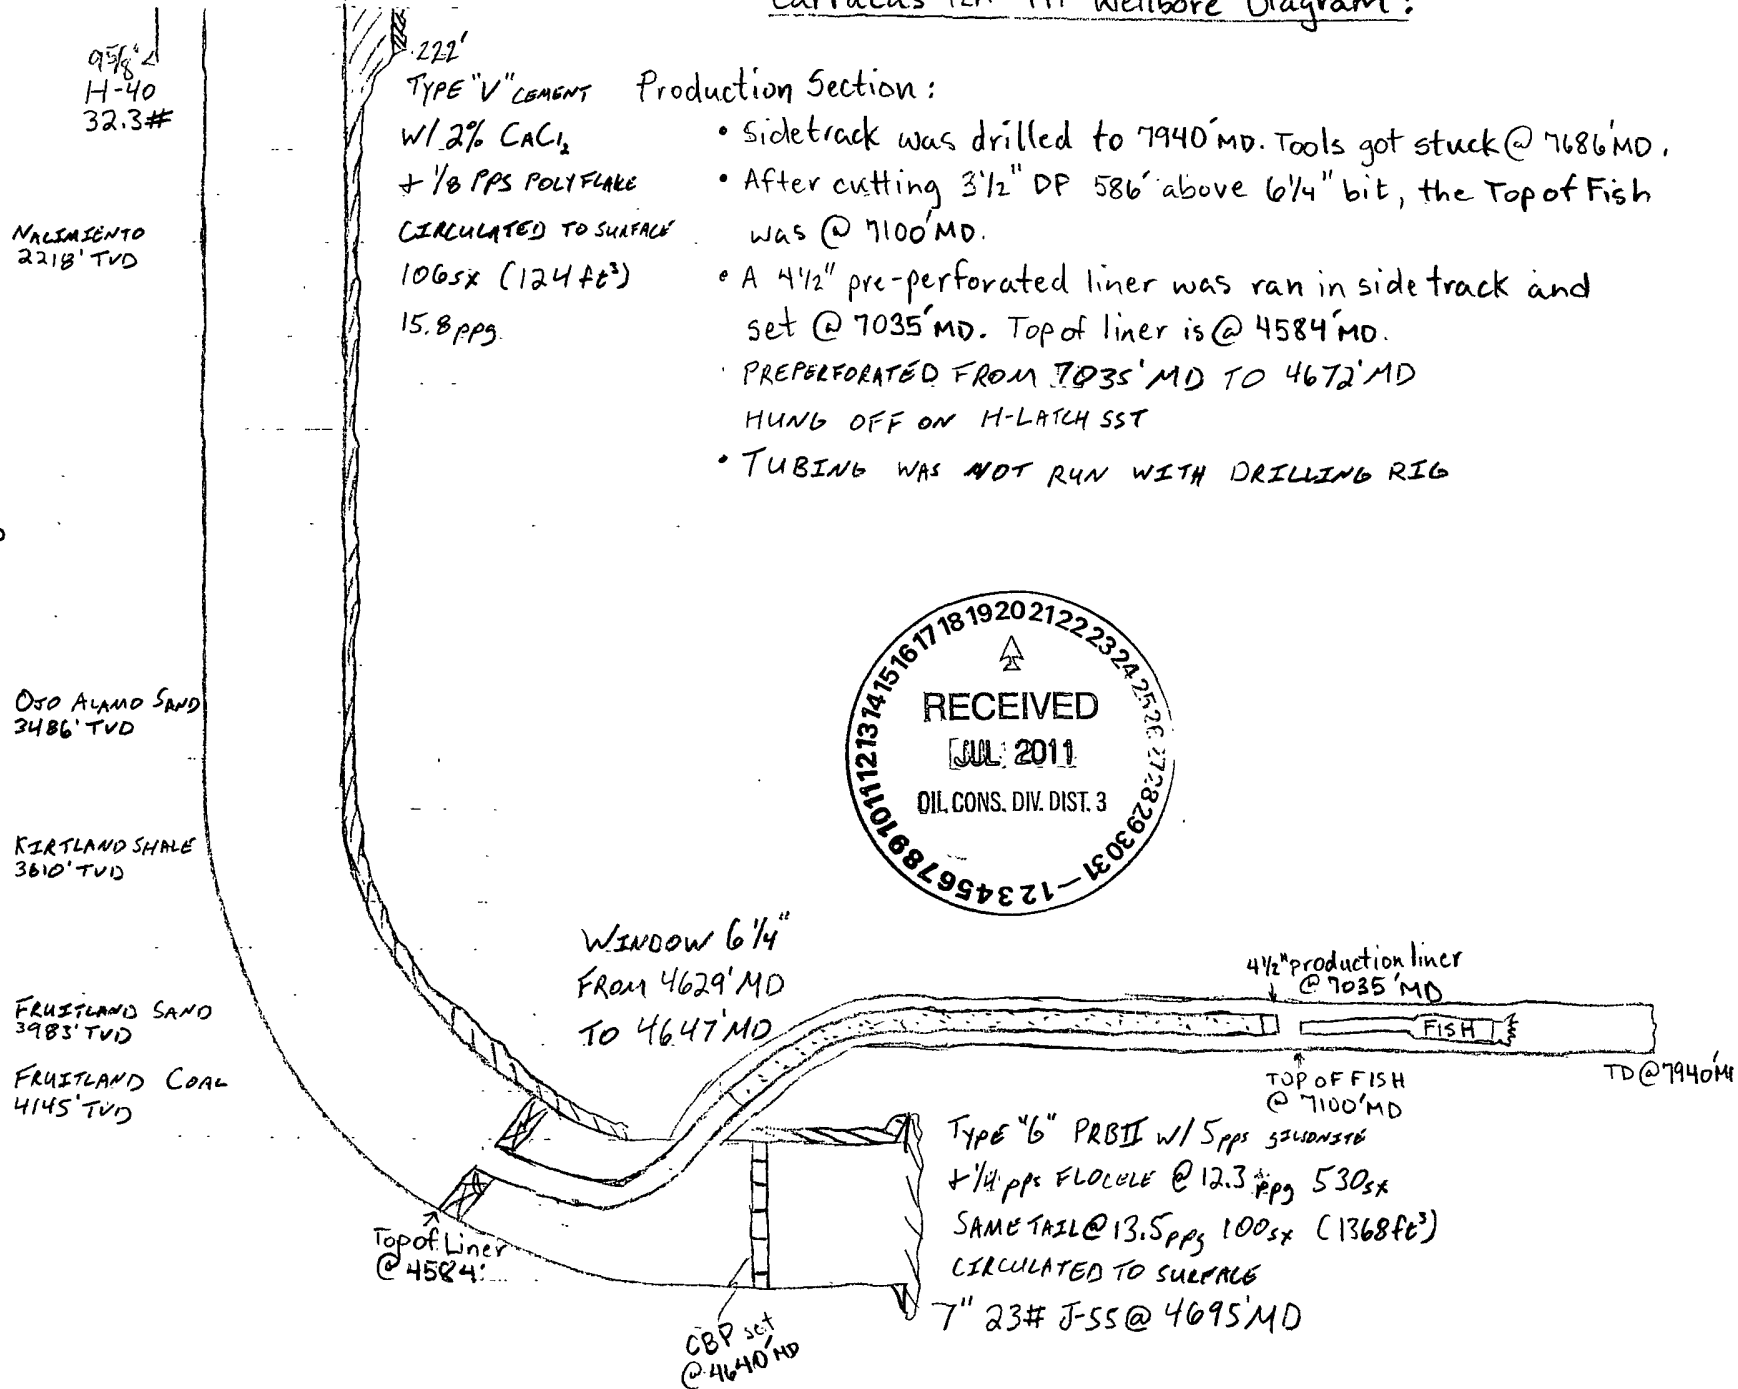 Wellbore Diagram:
9 5/8"
H-40
32.3#
222'
TYPE "V" CEMENT
W/ 2% CACl₂
+ 1/8 PPS POLYFLAKE
CIRCULATED TO SURFACE
106sx (124 ft³)
15.8ppg
Production Section:
• Sidetrack was drilled to 7940'MD. Tools got stuck @ 7686'MD.
• After cutting 3½" DP 586' above 6¼" bit, the Top of Fish
was @ 7100'MD.
• A 4½" pre-perforated liner was ran in side track and
set @ 7035'MD. Top of liner is @ 4584'MD.
PREPERFORATED FROM 7035'MD TO 4672'MD
HUNG OFF ON H-LATCH SST
• TUBING WAS NOT RUN WITH DRILLING RIG
NACIMIENTO
2218' TVD
OJO ALAMO SAND
3486' TVD
KIRTLAND SHALE
3610' TVD
FRUITLAND SAND
3983' TVD
FRUITLAND COAL
4145' TVD
12345678910111213141516171819202122232425262728293031
RECEIVED
JUL 2011
OIL CONS. DIV. DIST. 3
WINDOW 6¼"
FROM 4629'MD
TO 4647'MD
4½" production liner
@ 7035'MD
FISH
TOP OF FISH
@ 7100'MD
TD @ 7940'M
Top of Liner
@ 4584'
CBP set
@ 4640'MD
TYPE "G" PRBII W/ 5pps GILSONITE
+ ¼ pps FLOCELE @ 12.3 ppg 530sx
SAME TAIL @ 13.5ppg 100sx (1368ft³)
CIRCULATED TO SURFACE
7" 23# J-55 @ 4695'MD